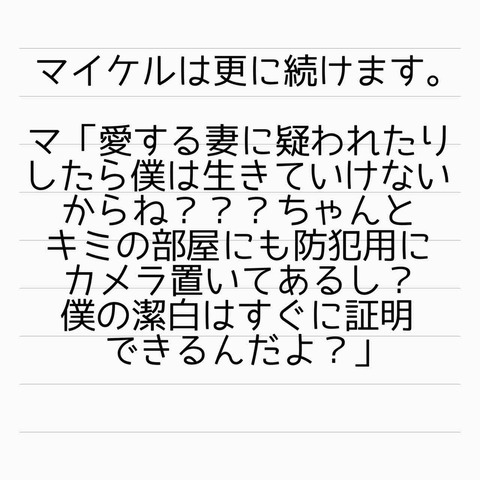 マイケルは更に続けます。
マ「愛する妻に疑われたり
したら僕は生きていけない
からね？？？ちゃんと
キミの部屋にも防犯用に
カメラ置いてあるし？
僕の潔白はすぐに証明
できるんだよ？」